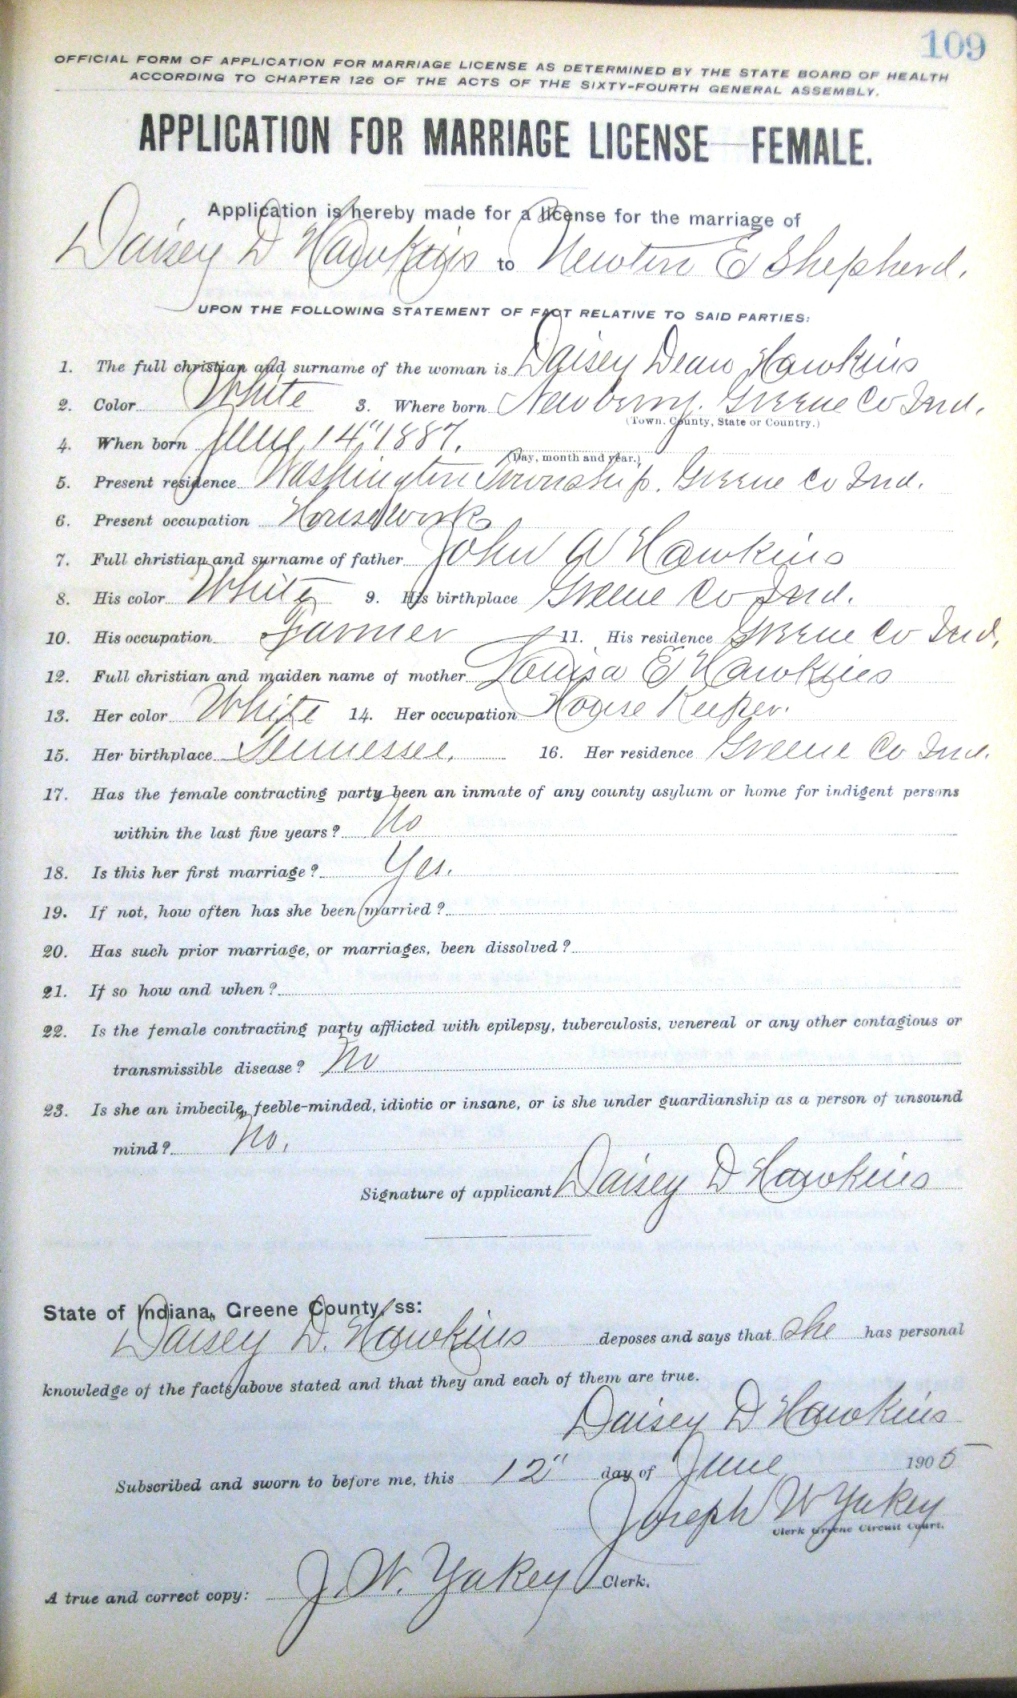 109
OFFICIAL FORM OF APPLICATION FOR MARRIAGE LICENSE AS DETERMINED BY THE STATE BOARD OF HEALTH
ACCORDING TO CHAPTER 126 OF THE ACTS OF THE SIXTY-FOURTH GENERAL ASSEMBLY.
APPLICATION FOR MARRIAGE LICENSE—FEMALE.
Application is hereby made for a license for the marriage of
Daisey D Hawkins to Newton E Shepherd.
UPON THE FOLLOWING STATEMENT OF FACT RELATIVE TO SAID PARTIES:
1. The full christian and surname of the woman is Daisey Dean Hawkins
2. Color White 3. Where born Newberry. Greene Co Ind.
(Town, County, State or Country.)
4. When born June 14" 1887.
(Day, month and year.)
5. Present residence Washington Township. Greene Co Ind.
6. Present occupation Housework
7. Full christian and surname of father John W Hawkins
8. His color White 9. His birthplace Greene Co Ind.
10. His occupation Farmer 11. His residence Greene Co Ind.
12. Full christian and maiden name of mother Louisa E Hawkins
13. Her color White 14. Her occupation House Keeper.
15. Her birthplace Tennessee. 16. Her residence Greene Co Ind.
17. Has the female contracting party been an inmate of any county asylum or home for indigent persons
within the last five years? No
18. Is this her first marriage? Yes.
19. If not, how often has she been married?
20. Has such prior marriage, or marriages, been dissolved?
21. If so how and when?
22. Is the female contracting party afflicted with epilepsy, tuberculosis, venereal or any other contagious or
transmissible disease? No
23. Is she an imbecile, feeble-minded, idiotic or insane, or is she under guardianship as a person of unsound
mind? No.
Signature of applicant Daisey D Hawkins
State of Indiana, Greene County, ss:
Daisey D. Hawkins deposes and says that she has personal
knowledge of the facts above stated and that they and each of them are true.
Daisey D Hawkins
Subscribed and sworn to before me, this 12" day of June 1905
Joseph W Yakey
Clerk Greene Circuit Court.
A true and correct copy: J. W. Yakey Clerk.